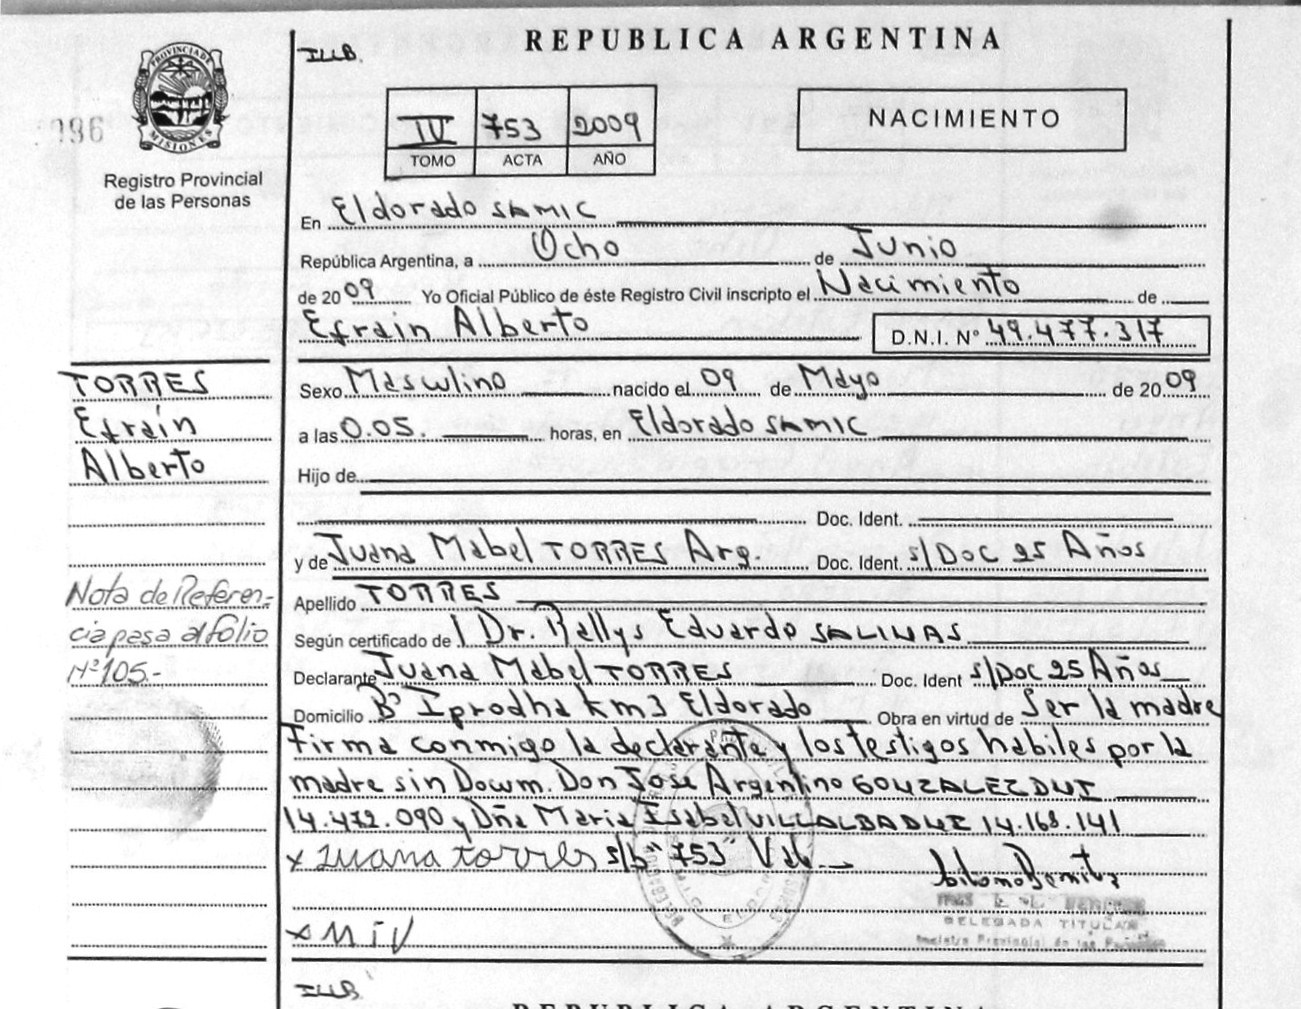 REPUBLICA ARGENTINA
PROVINCIA DE
MISIONES
Registro Provincial
de las Personas
IV 753 2009
TOMO ACTA AÑO
NACIMIENTO
En Eldorado SAMIC
República Argentina, a Ocho de Junio
de 2009 Yo Oficial Público de éste Registro Civil inscripto el Nacimiento de
Efrain Alberto D.N.I. Nº 49.477.317
TORRES
Efraín
Alberto
Sexo Masculino nacido el 09 de Mayo de 2009
a las 0.05. horas, en Eldorado SAMIC
Hijo de
Doc. Ident.
y de Juana Mabel TORRES Arg. Doc. Ident. s/Doc 25 Años
Nota de Referen-
cia pasa al folio
Nº 105.-
Apellido TORRES
Según certificado de Dr. Rallys Eduardo SALINAS
Declarante Juana Mabel TORRES Doc. Ident s/Doc 25 Años
Domicilio Bº Iprodha km3 Eldorado Obra en virtud de Ser la madre
Firma conmigo la declarante y los testigos habiles por la
madre sin Docum. Don Jose Argentino GONZALEZ DNI
14.472.090 y Dña Maria Isabel VILLALBA DNI 14.168.141
x Juana torres s/b "753" Vale
DELEGADA TITULAR
Registro Provincial de las Personas
REPUBLICA ARGENTINA